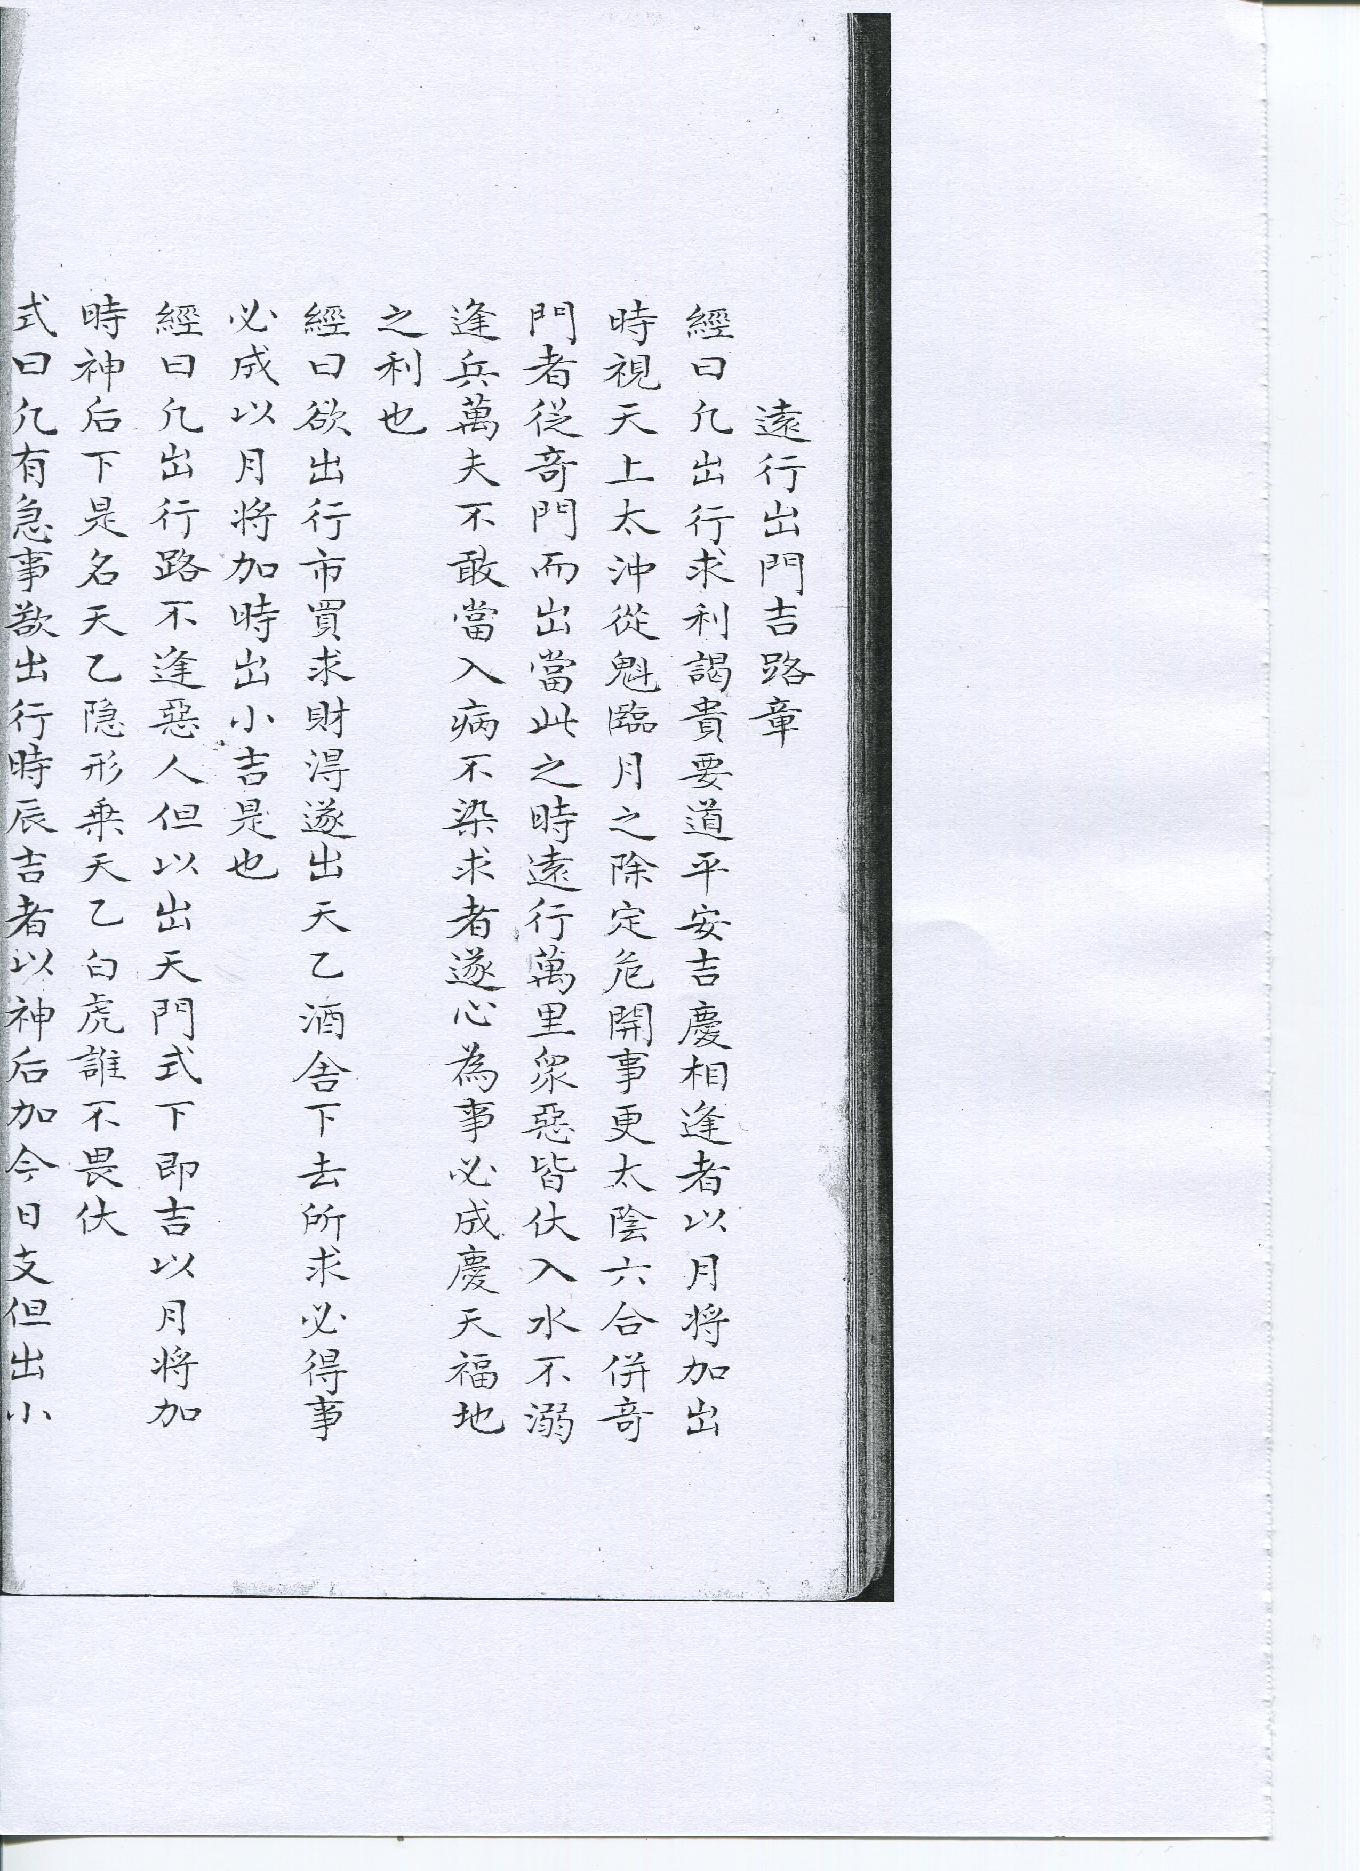 遠行出門吉路章
經曰凡出行求利謁貴要道平安吉慶相逢者以月将加出
時視天上太沖從魁臨月之除定危開事更太陰六合併奇
門者從奇門而出當此之時遠行萬里衆惡皆伏入水不溺
逢兵萬夫不敢當入病不染求者遂心為事必成慶天福地
之利也
經曰欲出行市買求財得遂出天乙酒舎下去所求必得事
必成以月将加時出小吉是也
經曰凡出行路不逢惡人但以出天門式下即吉以月将加
時神后下是名天乙隐形乗天乙白虎誰不畏伏
式曰凡有急事欲出行時辰吉者以神后加今日支但出小